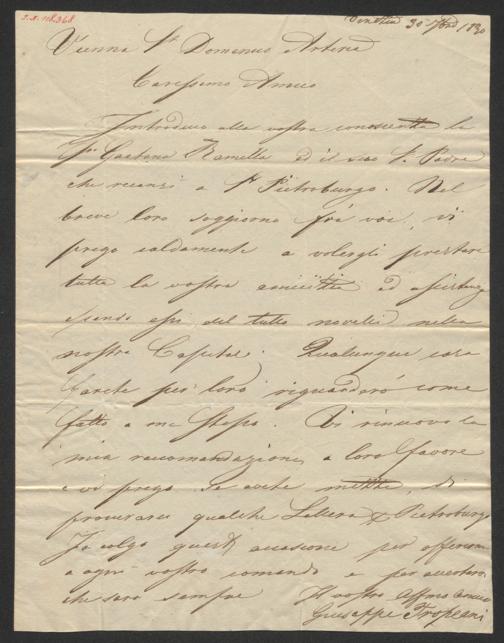 Venezia 30 1830
Vienna Sr. Domenico Artaria
Carissimo Amico
Introduco alla vostra conoscenza la
Sra. Gaetana Ramella ed il suo S. Padre
che recansi a S. Pietroburgo. Nel
breve loro soggiorno frà voi, vi
prego caldamente a volergli prestare
tutta la vostra amicizia ed assistenza
essendo essi del tutto novelli nella
vostra Capitale. Qualunque cosa
farete per loro riguarderò come
fatto a me stesso. Vi rinnovo la
mia raccomandazione a loro favore
e vi prego se avete di
procurarci qualche Lettera p Pietroburgo
Io colgo questa occasione per offerirmi
a ogni vostro comando e per accertarvi
che sarò sempre Il vostro Affmo Amico
Giuseppe